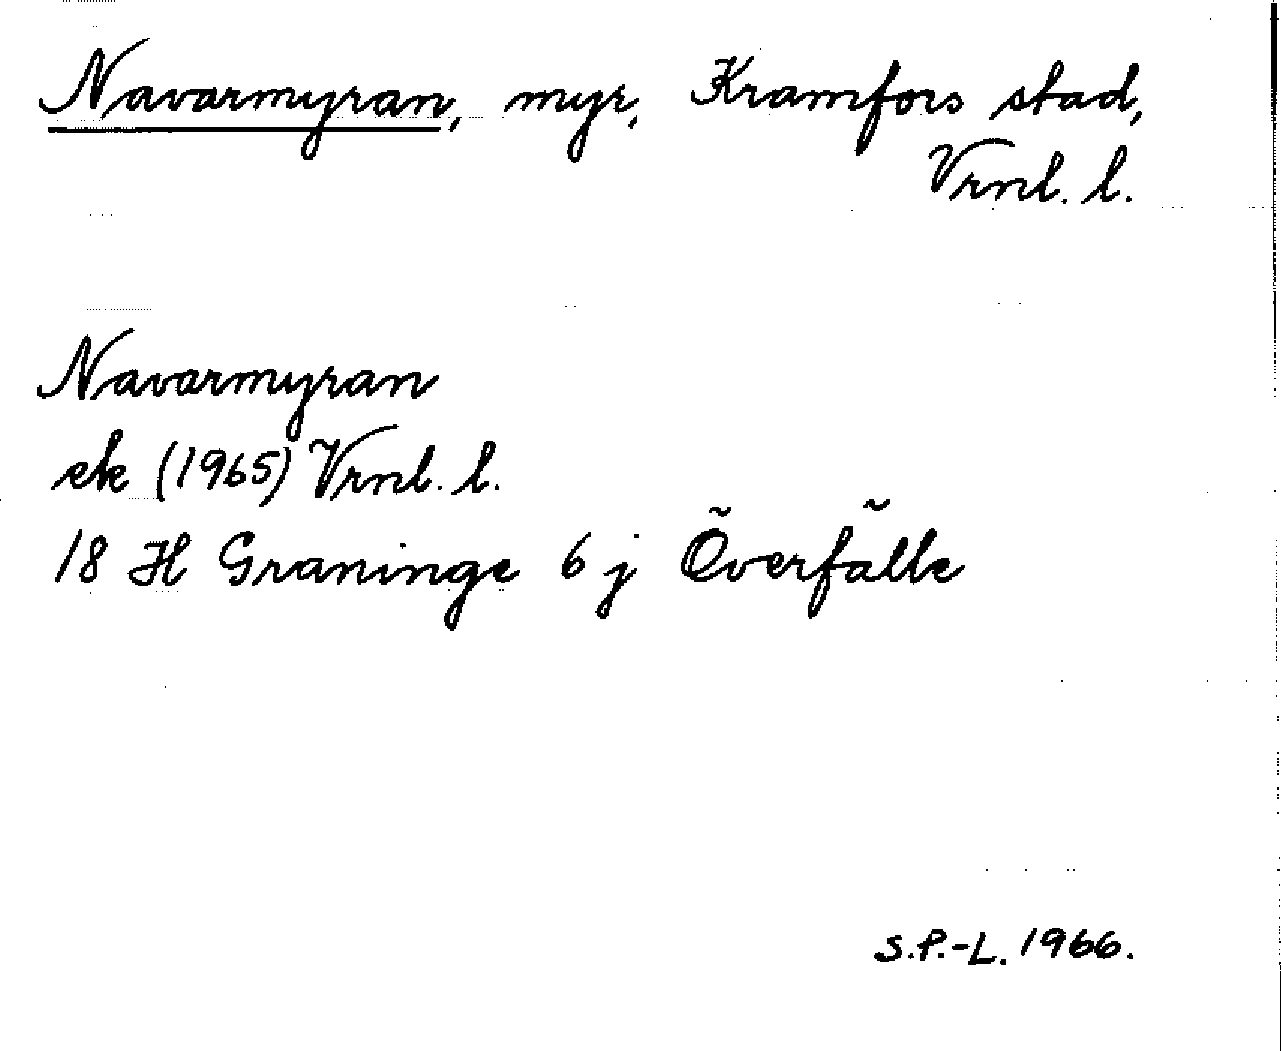 Navarmyran, myr, Kramfors stad,
Vrnl. l.
Navarmyran
ek (1965) Vrnl. l.
18 H Graninge 6 j Överfälle
S.P.-L. 1966.